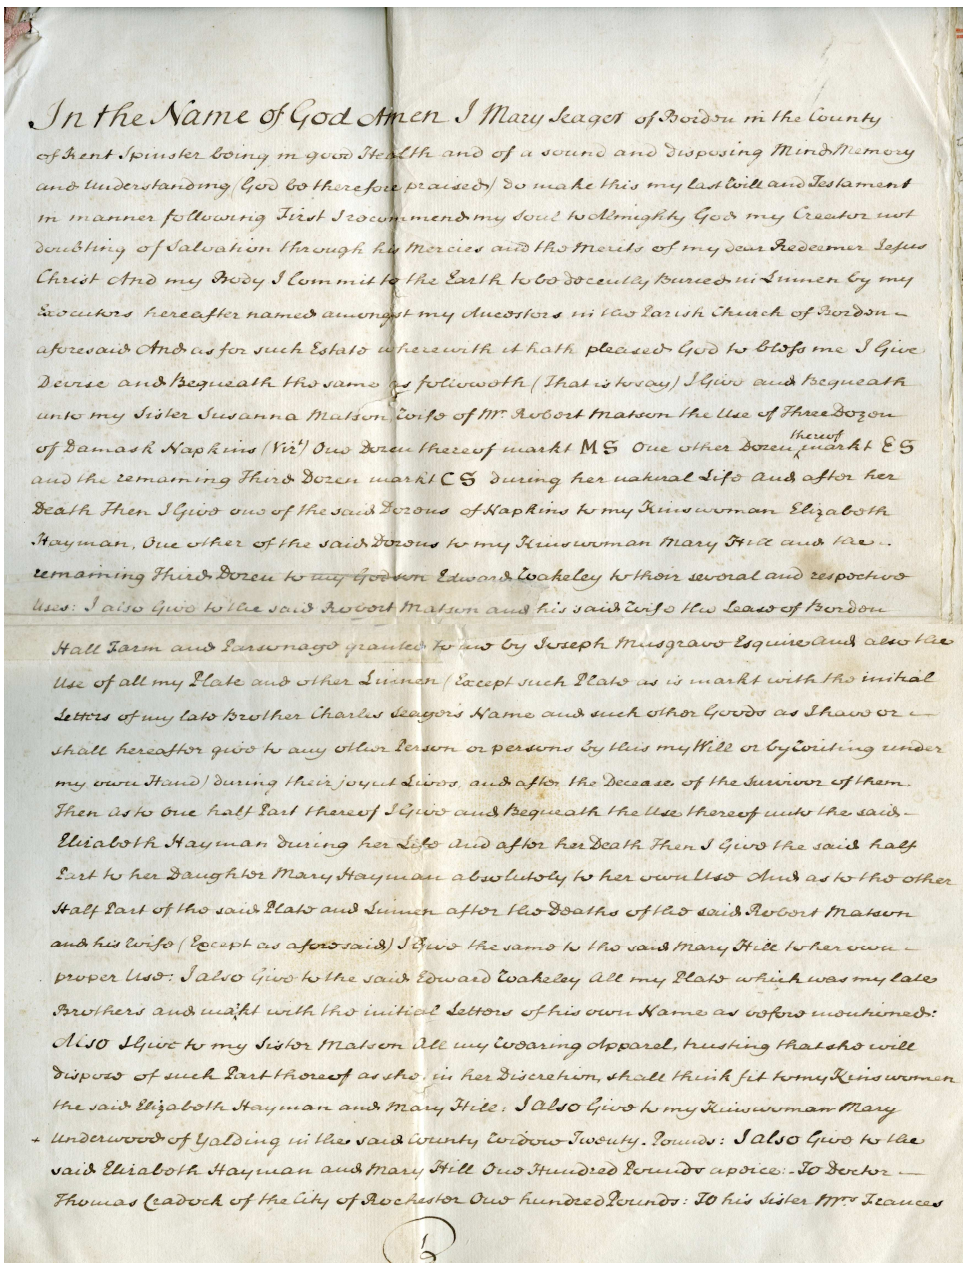 In the Name of God Amen I Mary Seager of Bordon in the County
of Kent Spinster being in good Health and of a sound and disposing Mind Memory
and Understanding (God be therefore praised) do make this my last Will and Testament
in manner following First I recommend my Soul to Almighty God my Creator not
doubting of Salvation through his Mercies and the Merits of my dear Redeemer Jesus
Christ And my Body I Commit to the Earth to be decently Buried in Linnen by my
Executors hereafter named amongst my Ancestors in the Parish Church of Bordon
aforesaid And as for such Estate wherewith it hath pleased God to bless me I Give
Devise and Bequeath the same as followeth (That is to say) I Give and Bequeath
unto my Sister Susanna Matson Wife of Mr. Robert Matson the Use of Three Dozen
of Damask Napkins (Vizt) One Dozen thereof markt MS One other Dozen thereof markt ES
and the remaining Third Dozen markt CS during her natural Life And after her
Death Then I Give one of the said Dozens of Napkins to my Kinswoman Elizabeth
Hayman, One other of the said Dozens to my Kinswoman Mary Hill and the
remaining Third Dozen to my Godson Edward Wakeley to their several and respective
Uses: I also Give to the said Robert Matson and his said Wife the Lease of Bordon
Hall Farm and Parsonage granted to me by Joseph Musgrave Esquire And also the
Use of all my Plate and other Linnen (Except such Plate as is markt with the initial
Letters of my late Brother Charles Seager's Name and such other Goods as I have or
shall hereafter give to any other Person or persons by this my Will or by Writing under
my own Hand) during their joynt Lives, and after the Decease of the Survivor of them.
Then as to One half Part thereof I Give and Bequeath the Use thereof unto the said
Elizabeth Hayman during her Life And after her Death Then I Give the said half
Part to her Daughter Mary Hayman absolutely to her own Use And as to the other
Half Part of the said Plate and Linnen after the Deaths of the said Robert Matson
and his Wife (Except as aforesaid) I Give the same to the said Mary Hill to her own
proper Use: I also Give to the said Edward Wakeley All my Plate which was my late
Brothers and markt with the initial Letters of his own Name as before mentioned:
Also I Give to my Sister Matson All my Wearing Apparel, trusting that she will
dispose of such Part thereof as she, in her Discretion, shall think fit to my Kinswomen
the said Elizabeth Hayman and Mary Hill: I also Give to my Kinswoman Mary
+ Underwood of Yalding in the said County Widow Twenty Pounds: I also Give to the
said Elizabeth Hayman and Mary Hill One Hundred Pounds apeice - To Doctor
Thomas Cradock of the City of Rochester One hundred Pounds: To his Sister Mrs Frances